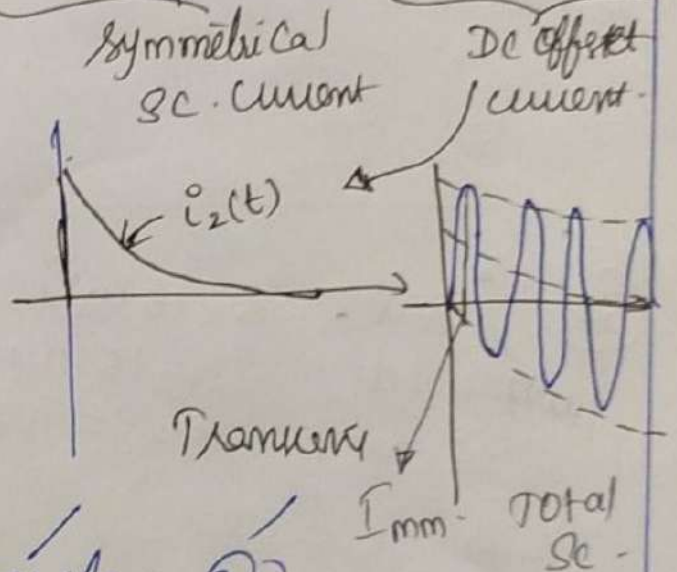 Symmetrical
SC. Current
DC offset
current.
i₂(t)
Imm.
Total
SC.